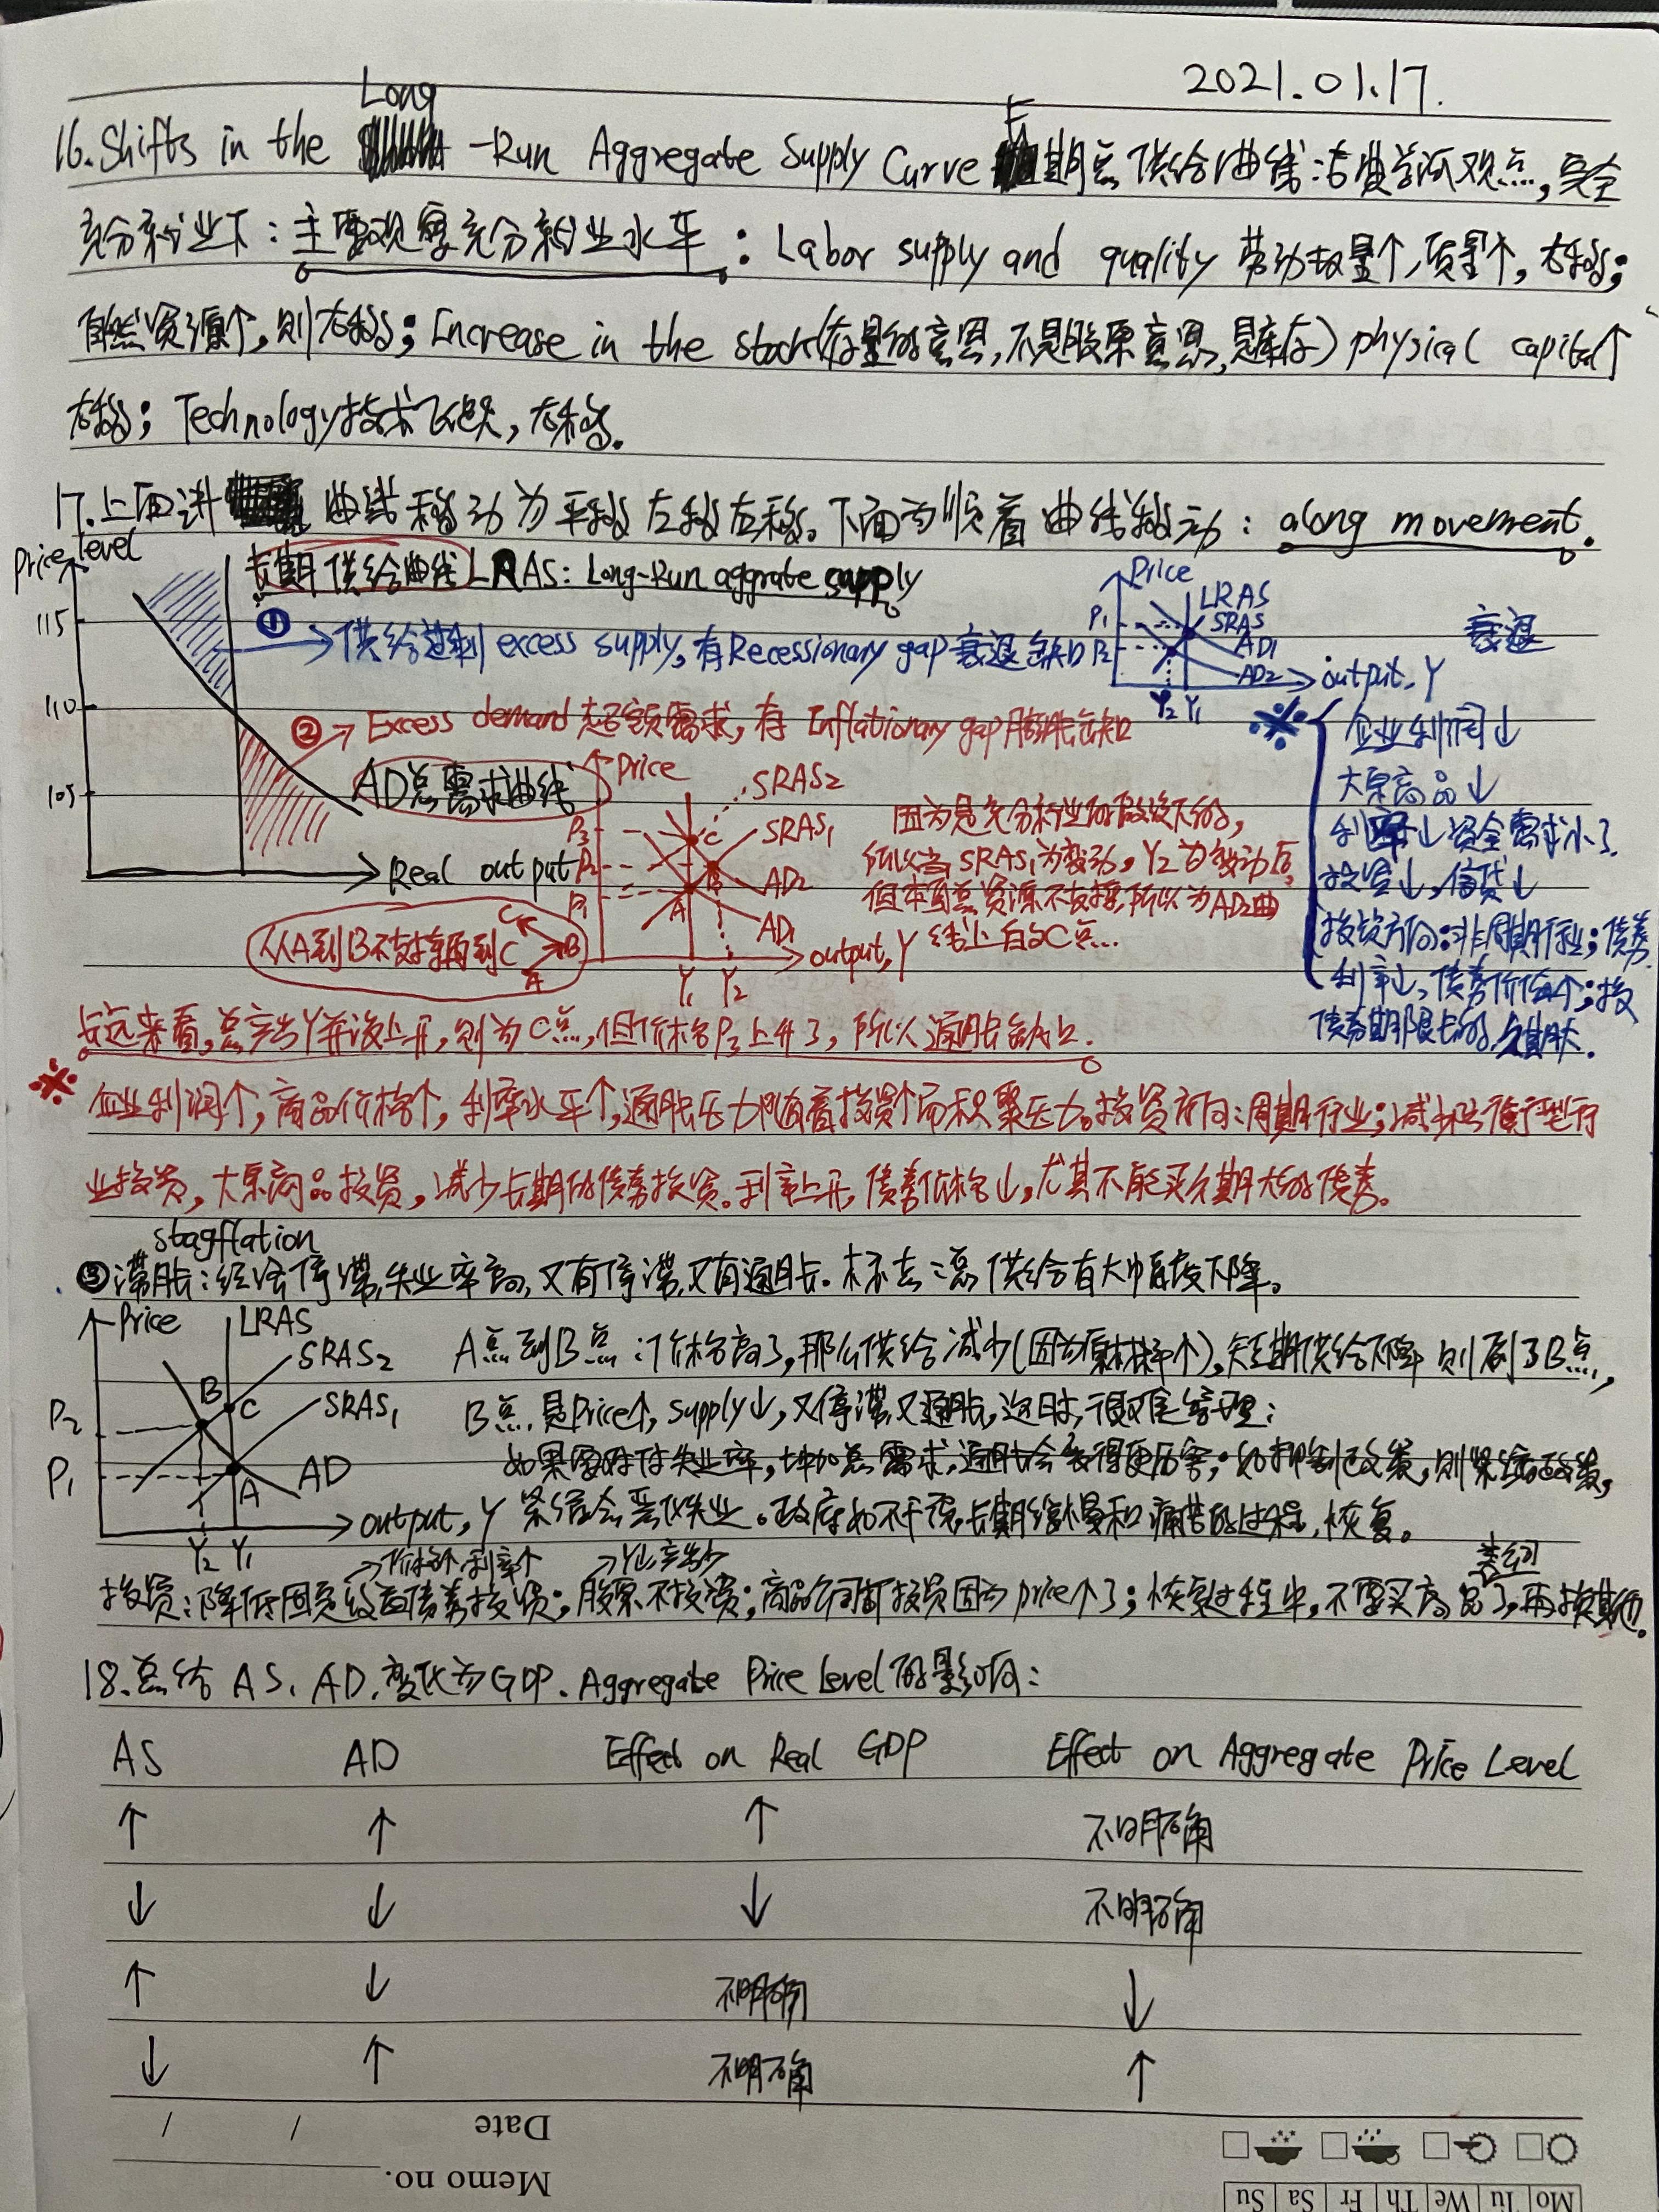 2021.01.17.
16. Shifts in the Long-Run Aggregate Supply Curve 长期总供给曲线:古典学派观点,完全
充分就业下:主要观察充分就业水平:Labor supply and quality 劳动数量↑,质量↑,右移;
自然资源↑,则右移;Increase in the stock(存量的意思,不是股票意思,是库存)physical capital↑
右移;Technology技术飞跃,右移.
17.上面讲曲线移动为平移左移右移。下面为顺着曲线移动:along movement.
Price level
长期供给曲线LRAS:Long-Run aggrate supply
115
110
105
Real output
① → 供给过剩excess supply,有Recessionary gap衰退缺口
Price
LRAS
SRAS
AD1
AD2
P1
P2
Y2 Y1
output, Y
衰退
② → Excess demand 超额需求,有Inflationary gap膨胀缺口
AD总需求曲线
Price
SRAS2
SRAS1
AD2
AD1
P3
P2
P1
A
B
C
Y1 Y2
output, Y
因为是充分就业的假设下的,
所以当SRAS1为变动,Y2为变动后,
但本国总资源不支撑,所以为AD2曲
线上的C点...
从A到B不支撑再到C
C
B
A
※
企业利润↓
大宗商品↓
利率↓资金需求小了
投资↓,信贷↓
投资方向:非周期行业;债券
利率↓,债券价值↑;投
债券期限长的,久期大.
长远来看,总产出Y并没上升,则为C点,但价格P3上升了,所以通胀缺口.
※
企业利润↑,商品价格↑,利率水平↑,通胀压力随着投资↑而积聚压力。投资方向:周期行业;减少防御型行
业投资,大宗商品投资,减少长期的债券投资。利率上升,债券价格↓,尤其不能买久期大的债券。
stagflation
③滞胀:经济停滞,失业率高,又有停滞,又有通胀.标志:总供给有大幅度下降。
Price
LRAS
SRAS2
SRAS1
AD
P2
P1
B
C
A
Y2 Y1
output, Y
A点到B点:价格高了,那么供给减少(因为原材料↑),短期供给下降则到了B点,
B点,是Price↑, supply↓,又停滞又通胀,这时,很难管理:
如果要对付失业率,增加总需求,通胀会变得更厉害;如抑制政策,则紧缩政策,
紧缩会恶化失业。政府如不干预,长期缓慢和痛苦的过程,恢复。
→价格↑,利率↑
→Y↓,产出少
类的
投资:降低固定收益债券投资;股票不投资;商品何可投资因为price↑了;恢复过程中,不要买商品了,再投其他.
18.总结 AS、AD、变化为GDP、Aggregate Price Level的影响:
AS AD Effect on Real GDP Effect on Aggregate Price Level
↑ ↑ ↑ 不明确
↓ ↓ ↓ 不明确
↑ ↓ 不明确 ↓
↓ ↑ 不明确 ↑
Date / /
Memo no.
Mo Tu We Th Fr Sa Su